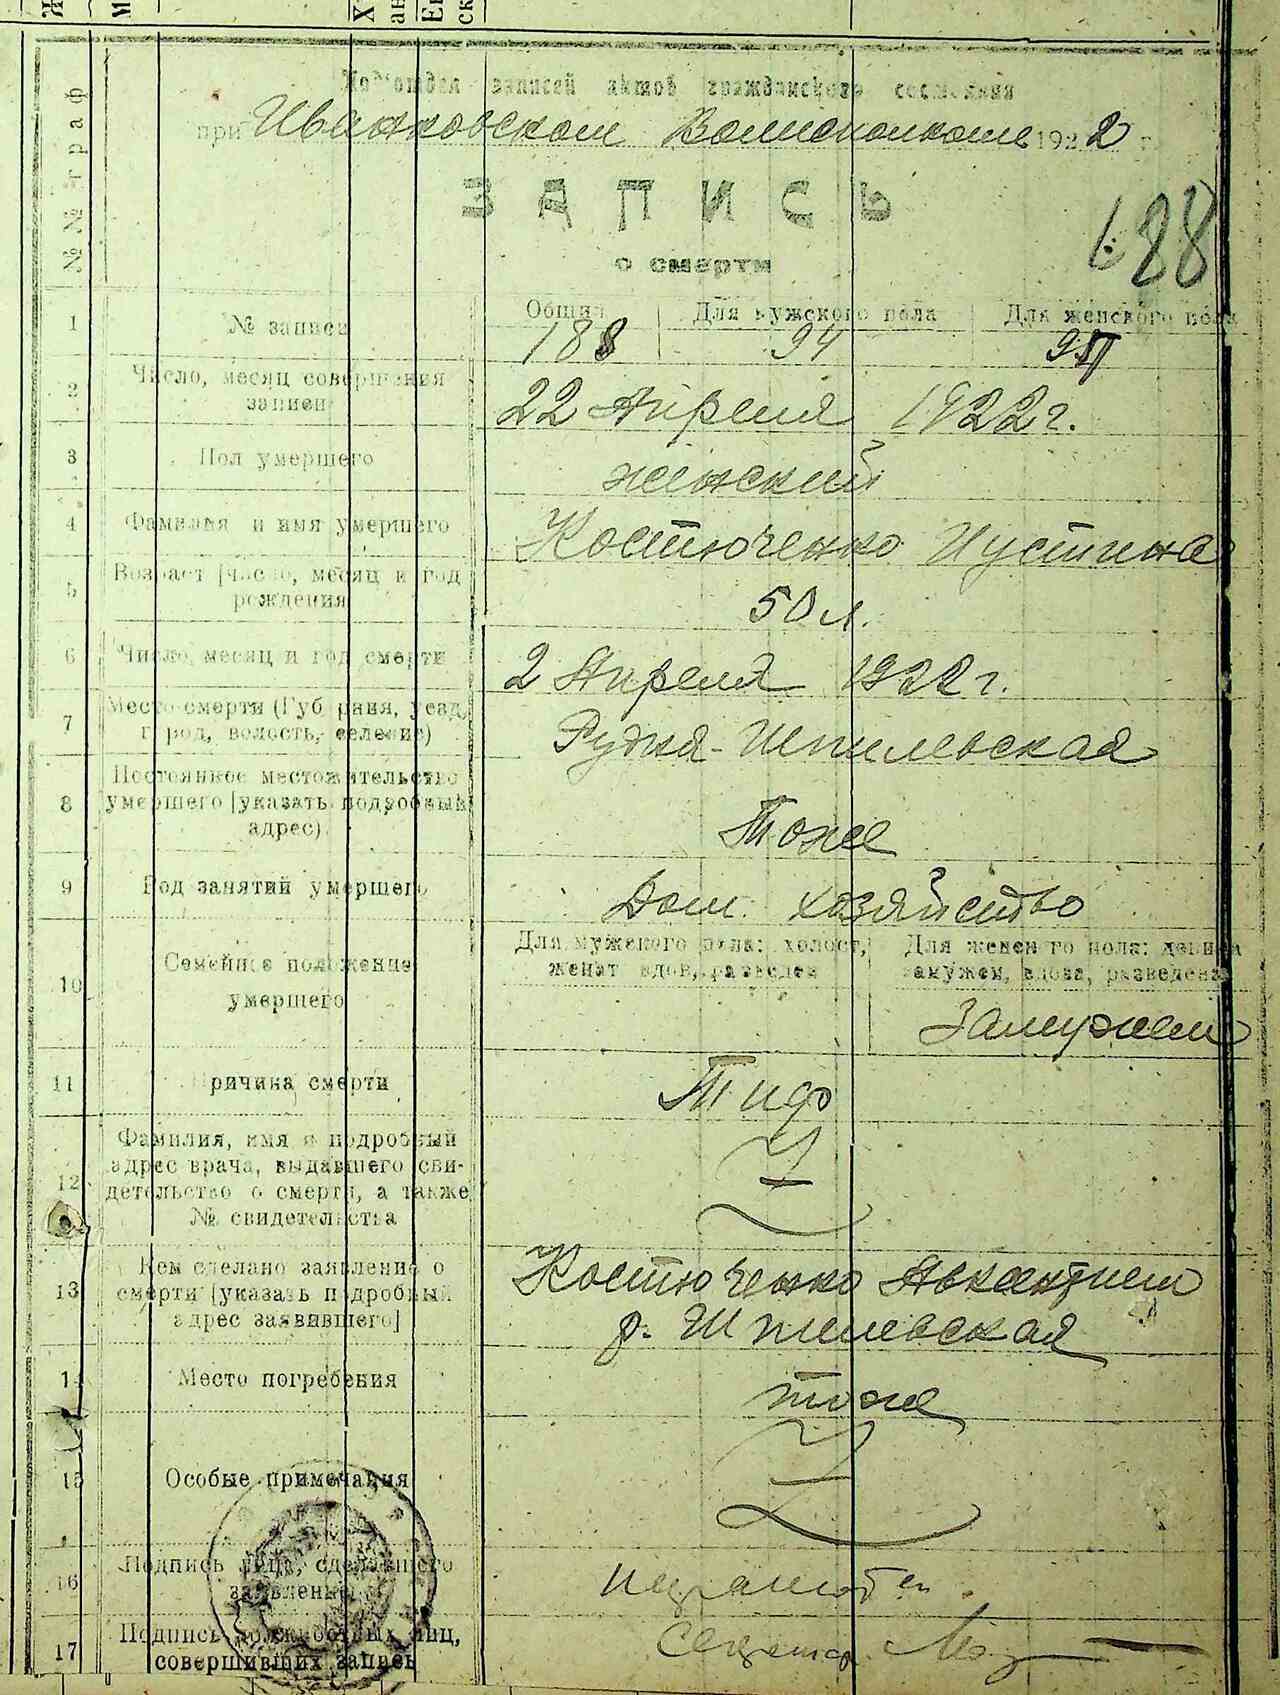 отдел записей актов гражданского состояния
при Иванковском Волисполкоме 1922 г.
ЗАПИСЬ
о смерти
№№ граф
1 № записи Общий Для мужского пола Для женского пола
188 94
2 Число, месяц совершения записи
22 Апреля 1922 г.
3 Пол умершего
женский
4 Фамилия и имя умершего
Костюченко Иустина
5 Возраст [число, месяц и год рождения
50 л.
6 Число, месяц и год смерти
2 Апреля 1922 г.
7 Место смерти (Губерния, уезд, город, волость, селение)
Рудня-Шпилевская
8 Постоянное местожительство умершего [указать подробный адрес)
Тоже
9 Род занятий умершего
Дом. хозяйство
10 Семейное положение умершего
Для мужского пола: холост, женат вдов, разведен
Для женского пола: девица замужем, вдова, разведена
Замужем
11 Причина смерти
Тиф
12 Фамилия, имя и подробный адрес врача, выдавшего сви-
детельство о смерти, а также № свидетельства
13 Кем сделано заявление о смерти [указать подробный адрес заявившего]
Костюченко Авксентием
р. Шпилевская
14 Место погребения
тоже
15 Особые примечания
16 Подпись лица, сделавшего заявление
неграмотен
17 Подпись должностных лиц, совершивших запись
Секретар